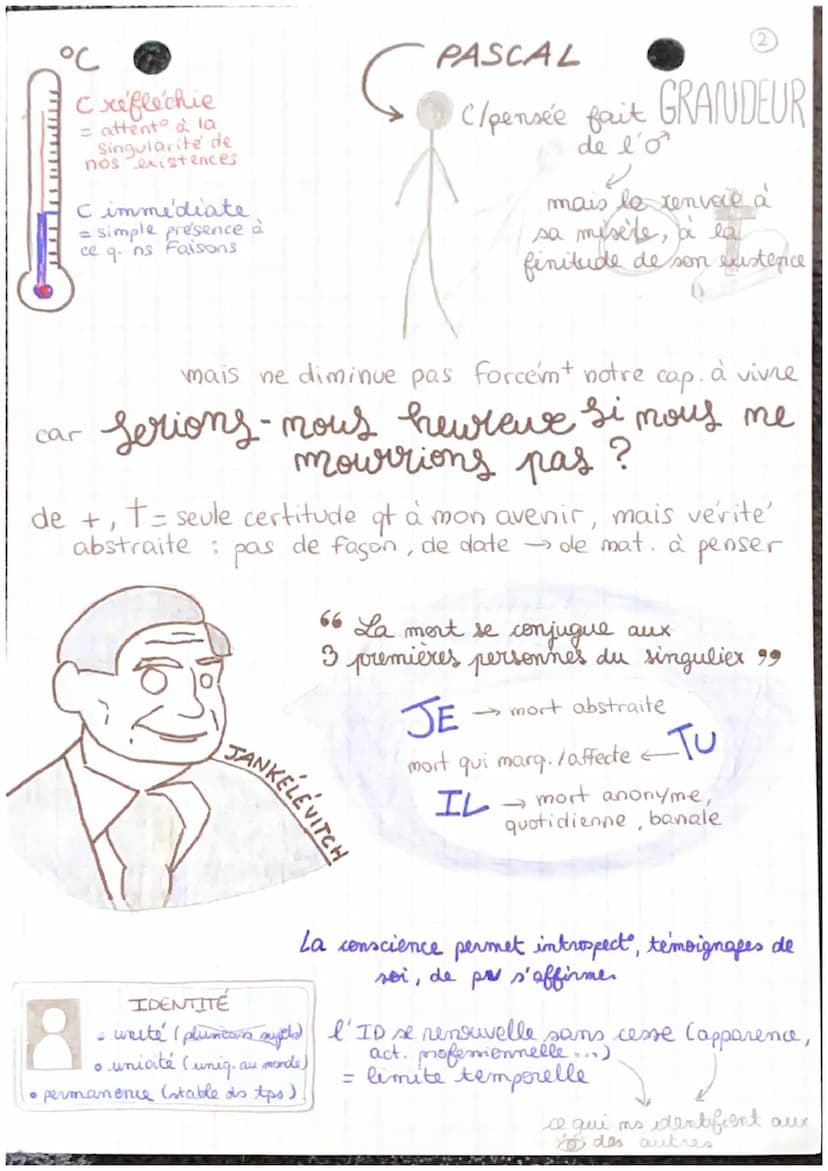 ②
°C
PASCAL
C réfléchie
= attent° à la
singularité de
nos existences
C immédiate
= simple présence à
ce q. ns faisons
C/pensée fait GRANDEUR
de l'♂
mais le renvoie à
sa misère, à la
finitude de son existence
mais ne diminue pas forcémt notre cap. à vivre
car serions-nous heureux si nous ne
mourrions pas ?
de +, † = seule certitude qt à mon avenir, mais vérité
abstraite : pas de façon, de date → de mat. à penser
“ La mort se conjugue aux
3 premières personnes du singulier ”
JE → mort abstraite
mort qui marq./affecte ← TU
IL → mort anonyme,
quotidienne, banale
JANKÉLÉVITCH
La conscience permet introspect°, témoignages de
soi, de pv s'affirmer
IDENTITÉ
• unité (plusieurs sujets)
• unicité (uniq. au monde)
• permanence (stable ds tps)
l'ID se renouvelle sans cesse (apparence,
act. professionnelle...)
= limite temporelle
ce qui ns identifient aux
des autres